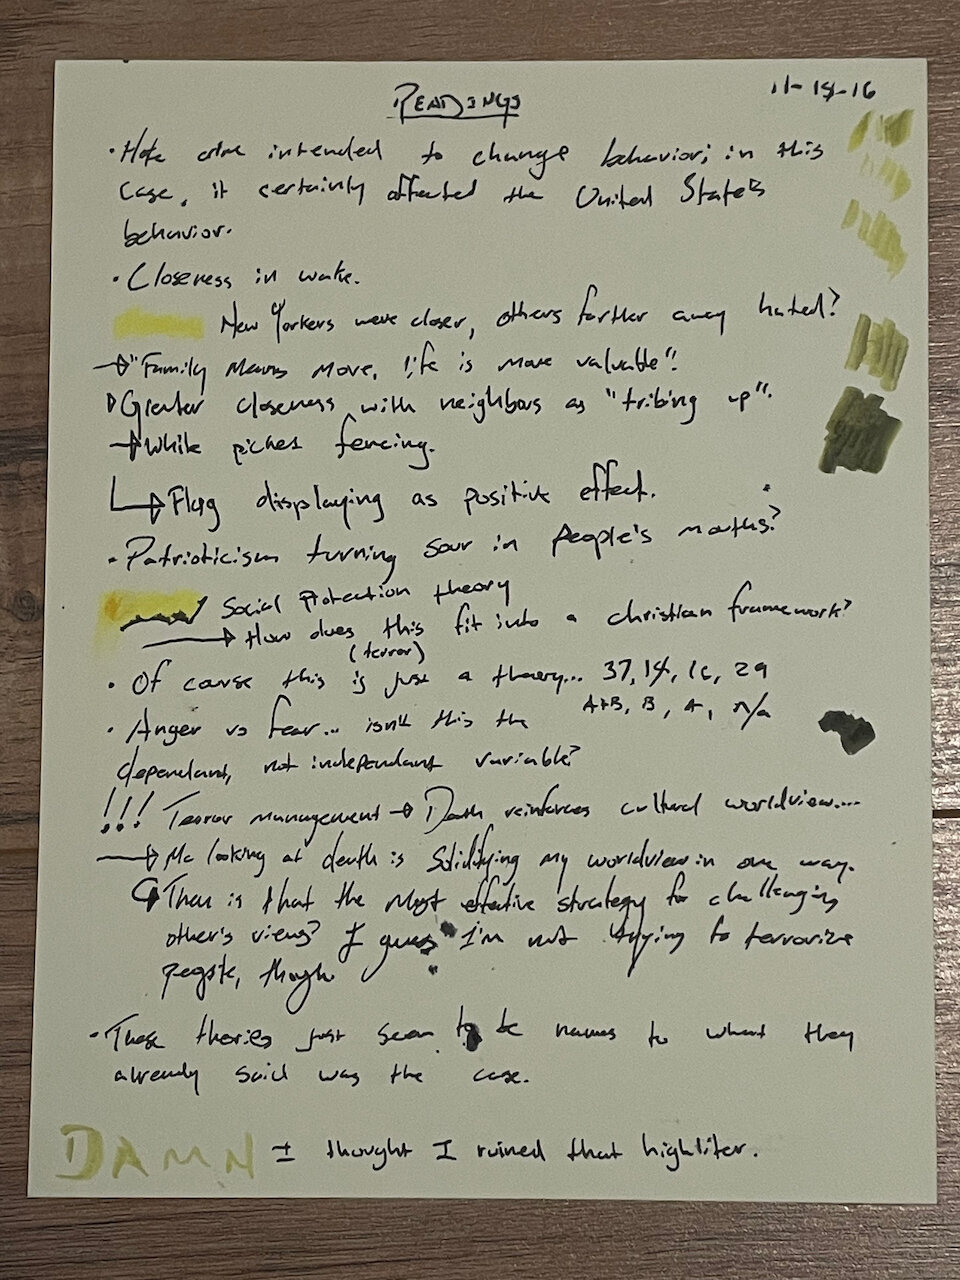 READINGS
11-14-16
· Hate crime intended to change behavior; in this
case, it certainly affected the United State's
behavior.
· Closeness in wake.
New Yorkers were closer, others farther away hated?
→ "Family means more, life is more valuable"!
Greater closeness with neighbors as "tribing up".
→ White picket fencing.
↳ Flag displaying as positive effect.
· Patrioticism turning sour in people's mouths?
Social protection theory
→ How does this fit into a christian framework?
(terror)
· Of course this is just a theory... 37, 14, 16, 29
A+B, B, A, n/a
· Anger vs fear... isn't this the
dependant, not independant variable?
!!! Terror management → Death reinforces cultural worldview....
→ Me looking at death is solidifying my worldview in one way.
↳ Then is that the most effective strategy for challenging
other's views? I guess I'm not trying to terrorize
people, though.
· These theories just seem to be names to what they
already said was the case.
DAMN I thought I ruined that highliter.